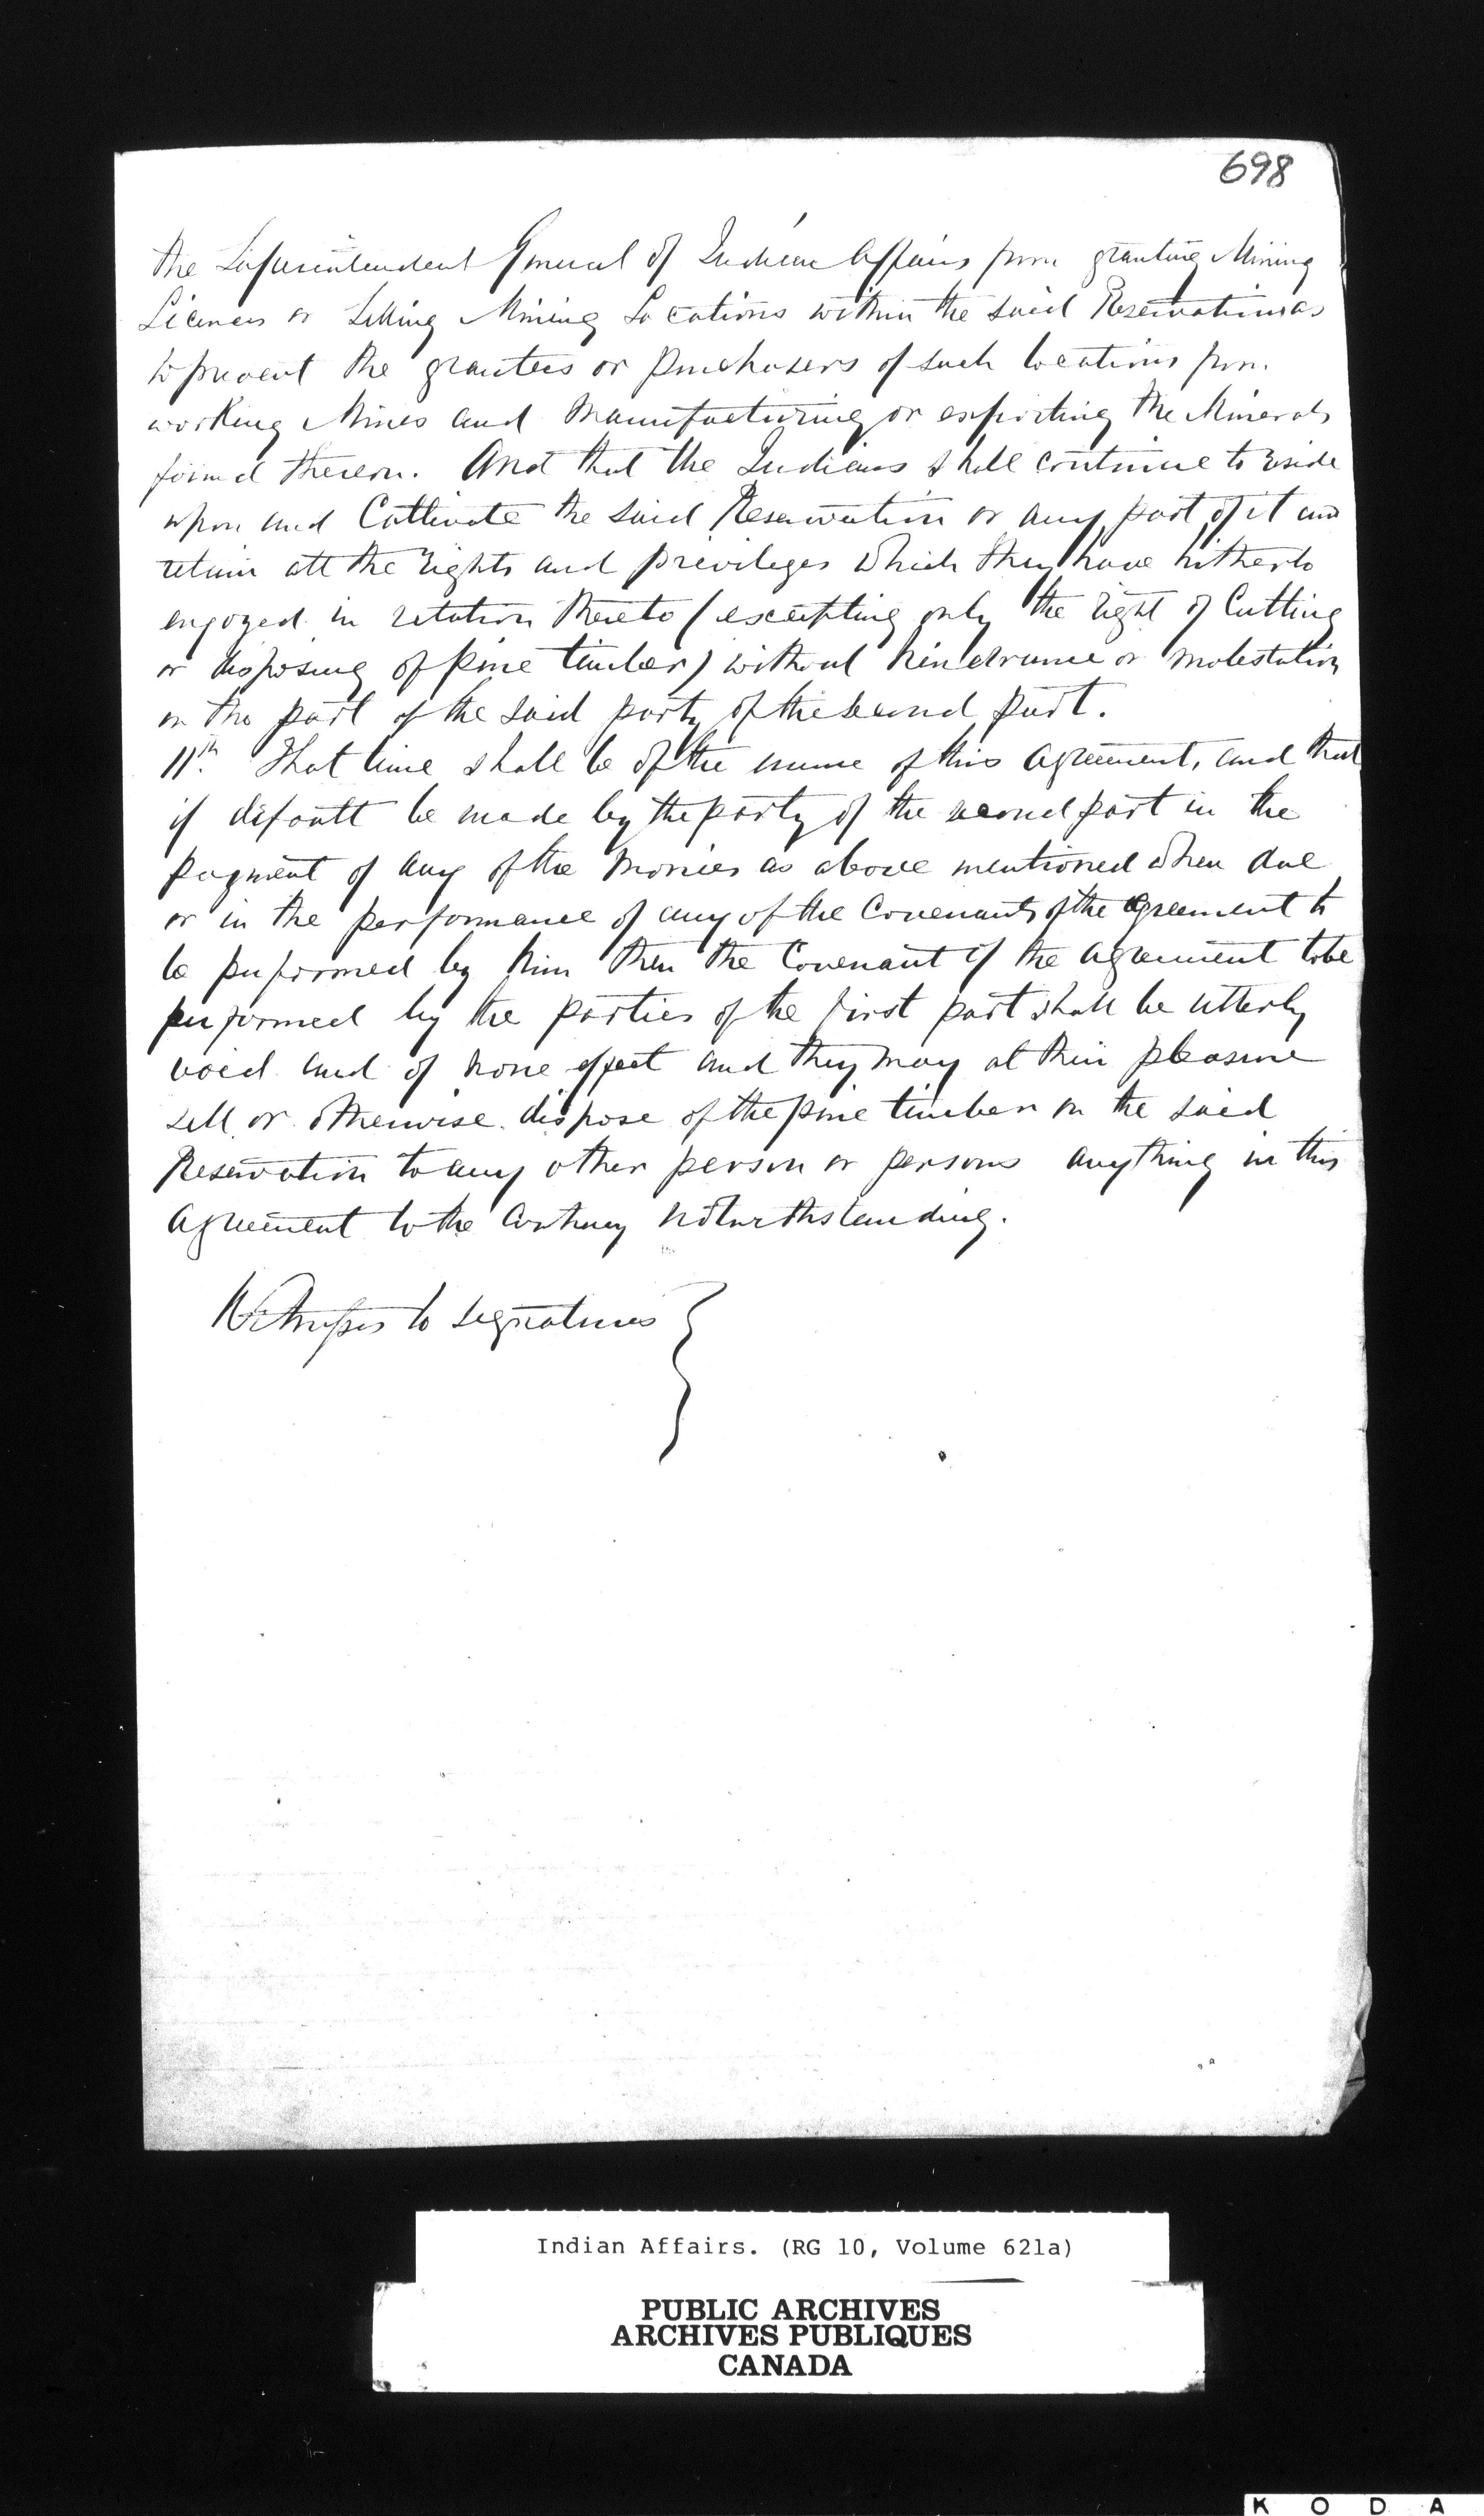 698
the Superintendent General of Indian Affairs from granting Mining
Licences or Selling Mining Locations within the said Reservation as
to prevent the grantees or purchasers of such locations from
working Mines and Manufacturing or exporting the Minerals
found thereon. And that the Indians shall continue to reside
upon and Cultivate the said Reservation or any part of it and
retain all the rights and privileges which they have hitherto
enjoyed in relation thereto (excepting only the right of Cutting
or disposing of pine timber) without hindrance or molestation
on the part of the said party of the second part.
11th. That time shall be of the essence of this Agreement, and that
if default be made by the party of the second part in the
payment of any of the monies as above mentioned when due
or in the performance of any of the Covenants of the Agreement to
be performed by him then the Covenant of the Agreement to be
performed by the parties of the first part shall be utterly
void and of none effect and they may at their pleasure
sell or otherwise dispose of the pine timber on the said
Reservation to any other person or persons anything in this
Agreement to the Contrary notwithstanding.
Witnesses to signatures }
Indian Affairs. (RG 10, Volume 621a)
PUBLIC ARCHIVES
ARCHIVES PUBLIQUES
CANADA
K O D A